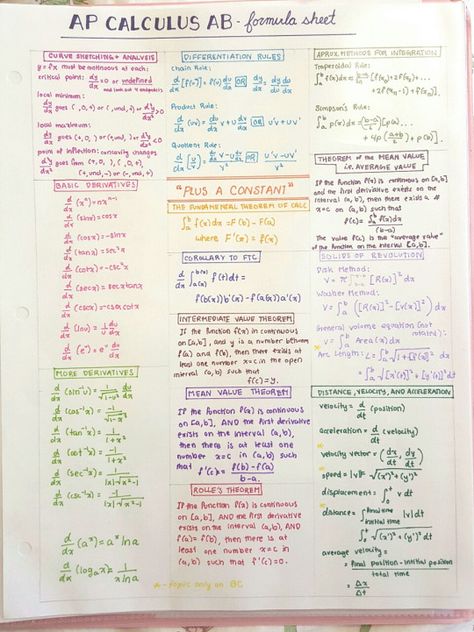 AP CALCULUS AB - formula sheet
CURVE SKETCHING + ANALYSIS
y = f(x) must be continuous at each:
critical point: dy/dx = 0 or undefined
and look out 4 endpoints
local minimum:
dy/dx goes (-,0,+) or (-,und,+) or d²y/dx² > 0
local maximum:
dy/dx goes (+,0,-) or (+,und,-) or d²y/dx² < 0
point of inflection: concavity changes
d²y/dx² goes from (+,0,-), (-,0,+)
(+,und,-) or (-,und,+)
BASIC DERIVATIVES
d/dx (xⁿ) = nxⁿ⁻¹
d/dx (sinx) = cosx
d/dx (cosx) = -sinx
d/dx (tanx) = sec²x
d/dx (cotx) = -csc²x
d/dx (secx) = secxtanx
d/dx (cscx) = -cscxcotx
d/dx (lnu) = 1/u du/dx
d/dx (eᵘ) = eᵘ du/dx
MORE DERIVATIVES
d/dx (sin⁻¹u) = 1/√1-u² du/dx
d/dx (cos⁻¹x) = -1/√1-x²
d/dx (tan⁻¹x) = 1/1+x²
d/dx (cot⁻¹x) = -1/1+x²
d/dx (sec⁻¹x) = 1/|x|√x²-1
d/dx (csc⁻¹x) = -1/|x|√x²-1
d/dx (aˣ) = aˣ lna
d/dx (logₐx) = 1/xlna
DIFFERENTIATION RULES
Chain Rule:
d/dx [f(u)] = f'(u) du/dx OR dy/dx = dy/du du/dx
Product Rule:
d/dx (uv) = du/dx v + u dv/dx OR u'v + uv'
Quotient Rule:
"PLUS A CONSTANT"
THE FUNDAMENTAL THEOREM OF CALC
∫ₐᵇ f(x)dx = F(b) - F(a)
where F'(x) = f(x)
COROLLARY TO FTC
f(b(x))b'(x) - f(a(x))a'(x)
INTERMEDIATE VALUE THEOREM
If the function f(x) is continuous
on [a,b], and y is a number between
f(a) and f(b), then there exists at
least one number x=c in the open
interval (a,b) such that
f(c)=y.
MEAN VALUE THEOREM
If the function f(x) is continuous
on [a,b], AND the first derivative
exists on the interval (a,b),
then there is at least one
number x=c in (a,b) such
that f'(c) = f(b)-f(a)/b-a.
ROLLE'S THEOREM
If the function f(x) is continuous
on [a,b], AND the first derivative
exists on the interval (a,b), AND
f(a)=f(b), then there is at
least one number x=c in
(a,b) such that f'(c)=0.
- topic only on BC
APROX. METHODS FOR INTEGRATION
Trapezoidal Rule:
Simpson's Rule:
THEOREM of the MEAN VALUE
i.e. AVERAGE VALUE
If the function f(x) is continuous on [a,b]
and the first derivative exists on the
interval (a,b), then there exists a #
x=c on (a,b) such that
f(c) = ∫ₐᵇ f(x)dx/(b-a)
The value f(c) is the "average value"
of the function on the interval [a,b].
SOLIDS OF REVOLUTION
Disk Method:
V = π∫ [R(x)]² dx
Washer Method:
V = π∫ₐᵇ ([R(x)]² - [r(x)]²) dx
General volume equation (not rotated):
V = ∫ₐᵇ Area(x) dx
Arc Length: L = ∫ₐᵇ √1+[f'(x)]² dx
= ∫ₐᵇ √[x'(t)]² + [y'(t)]² dt
DISTANCE, VELOCITY, AND ACCELERATION
velocity = d/dt (position)
acceleration = d/dt (velocity)
velocity vector = (dx/dt, dy/dt)
speed = |v| = √(x')² + (y')²
displacement = ∫ v dt
distance = ∫ final time initial time |v| dt
∫ √(x')² + (y')² dt
average velocity =
= final position - initial position/total time
= Δx/Δt